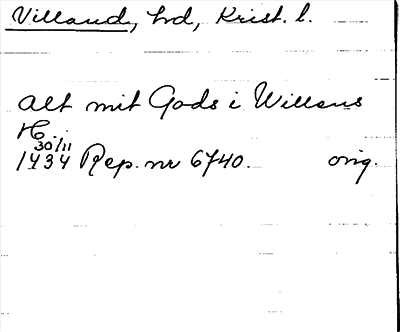 Villand, hd, Krist. l.
alt mit Gods i Willans
H.
30/11
1434 Rep. nr 6740. orig.